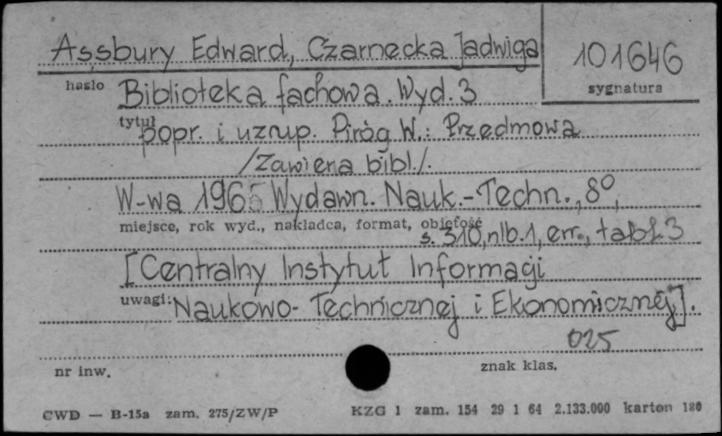 Assbury Edward, Czarnecka Jadwiga
101646
hasło
sygnatura
Biblioteka fachowa. Wyd. 3
tytuł
popr. i uzup. Piróg W.: Przedmowa
/Zawiera bibl./.
W-wa 1965 Wydawn. Nauk.-Techn., 8°,
miejsce, rok wyd., nakładca, format, objętość
s. 310, nlb. 1, err., tabl. 3
[Centralny Instytut Informacji
uwagi:
Naukowo-Technicznej i Ekonomicznej].
025
nr inw.
znak klas.
CWD — B-15a zam. 275/ZW/P
KZG 1 zam. 154 29 1 64 2.133.000 karton 180